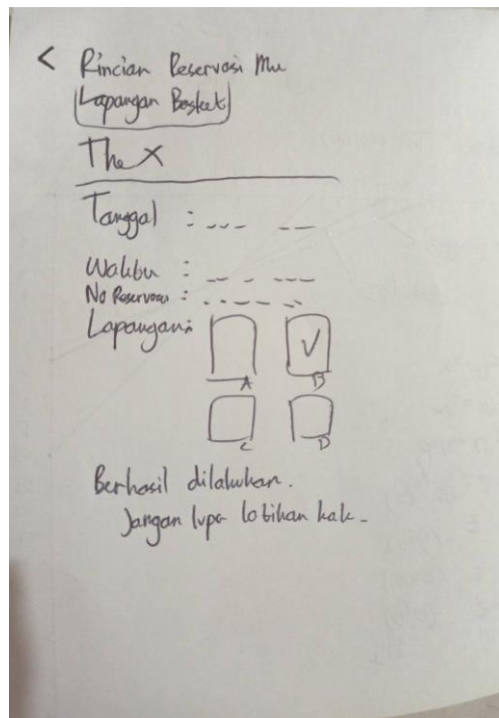 < Rincian Reservasi Mu
Lapangan Basket
The X
Tanggal : --- --
Waktu : -- - ---
No Reservasi : ------
Lapangan:
V
A B
C D
Berhasil dilakukan.
Jangan lupa latihan kak-